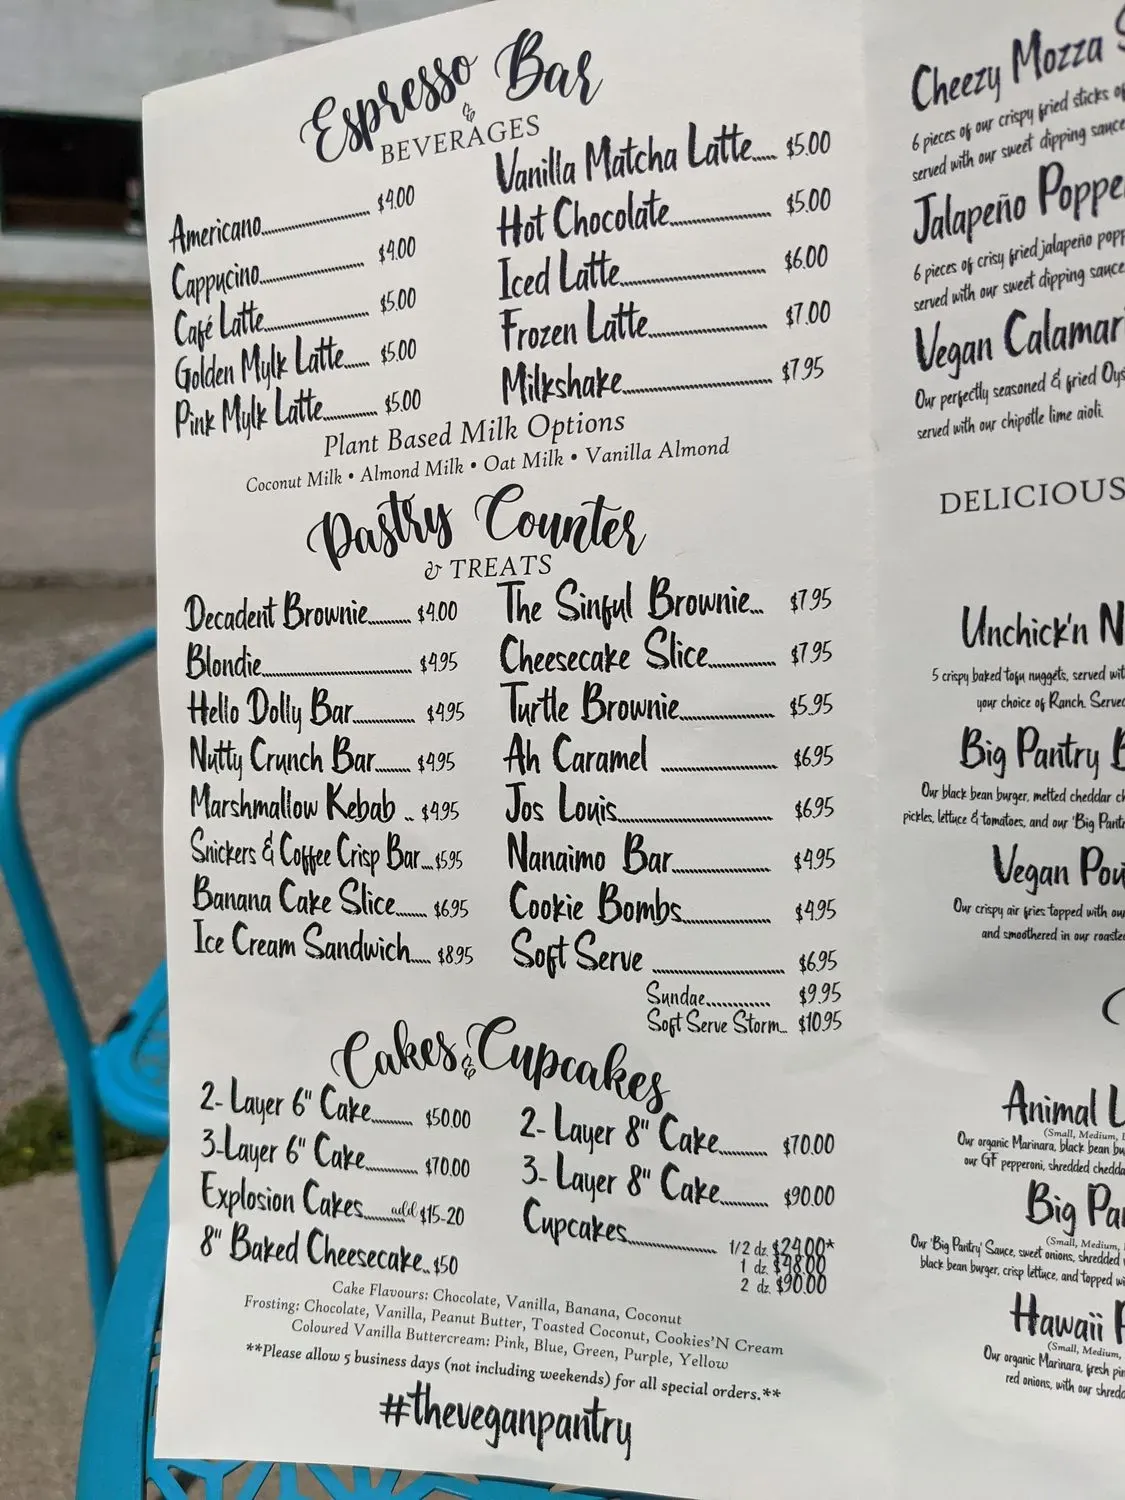 Espresso Bar
&
BEVERAGES
Americano $4.00
Cappucino $4.00
Café Latte $5.00
Golden Mylk Latte $5.00
Pink Mylk Latte $5.00
Vanilla Matcha Latte $5.00
Hot Chocolate $5.00
Iced Latte $6.00
Frozen Latte $7.00
Milkshake $7.95
Plant Based Milk Options
Coconut Milk • Almond Milk • Oat Milk • Vanilla Almond
Pastry Counter
& TREATS
Decadent Brownie $4.00
Blondie $4.95
Hello Dolly Bar $4.95
Nutty Crunch Bar $4.95
Marshmallow Kebab .. $4.95
Snickers & Coffee Crisp Bar $5.95
Banana Cake Slice $6.95
Ice Cream Sandwich $8.95
The Sinful Brownie... $7.95
Cheesecake Slice $7.95
Turtle Brownie $5.95
Ah Caramel $6.95
Jos Louis $6.95
Nanaimo Bar $4.95
Cookie Bombs $4.95
Soft Serve $6.95
Sundae $9.95
Soft Serve Storm $10.95
Cakes & Cupcakes
2- Layer 6" Cake $50.00
3-Layer 6" Cake $70.00
Explosion Cakes add $15-20
8" Baked Cheesecake.. $50
2- Layer 8" Cake $70.00
3- Layer 8" Cake $90.00
Cupcakes
1/2 dz. $24.00*
1 dz. $48.00
2 dz. $90.00
Cake Flavours: Chocolate, Vanilla, Banana, Coconut
Frosting: Chocolate, Vanilla, Peanut Butter, Toasted Coconut, Cookies'N Cream
Coloured Vanilla Buttercream: Pink, Blue, Green, Purple, Yellow
**Please allow 5 business days (not including weekends) for all special orders.**
#theveganpantry
Cheezy Mozza
6 pieces of our crispy fried sticks of
served with our sweet dipping sauce
Jalapeño
6 pieces of crisy fried jalapeño
served with our sweet dipping sauce
Vegan Calamari
Our perfectly seasoned & fried
served with our chipotle lime aioli.
DELICIOUS
Unchick'n
5 crispy baked tofu nuggets, served
your choice of Ranch.
Big Pantry
Our black bean burger, melted cheddar
pickles, lettuce & tomatoes, and our 'Big
Vegan
Our crispy air fries topped with
and smothered in our
Animal
(Small, Medium,
Our organic Marinara, black bean
our GF pepperoni, shredded
Big
(Small, Medium,
Our 'Big Pantry' Sauce, sweet onions, shredded
black bean burger, crisp lettuce, and topped
Hawaii
(Small, Medium,
Our organic Marinara, fresh
red onions, with our